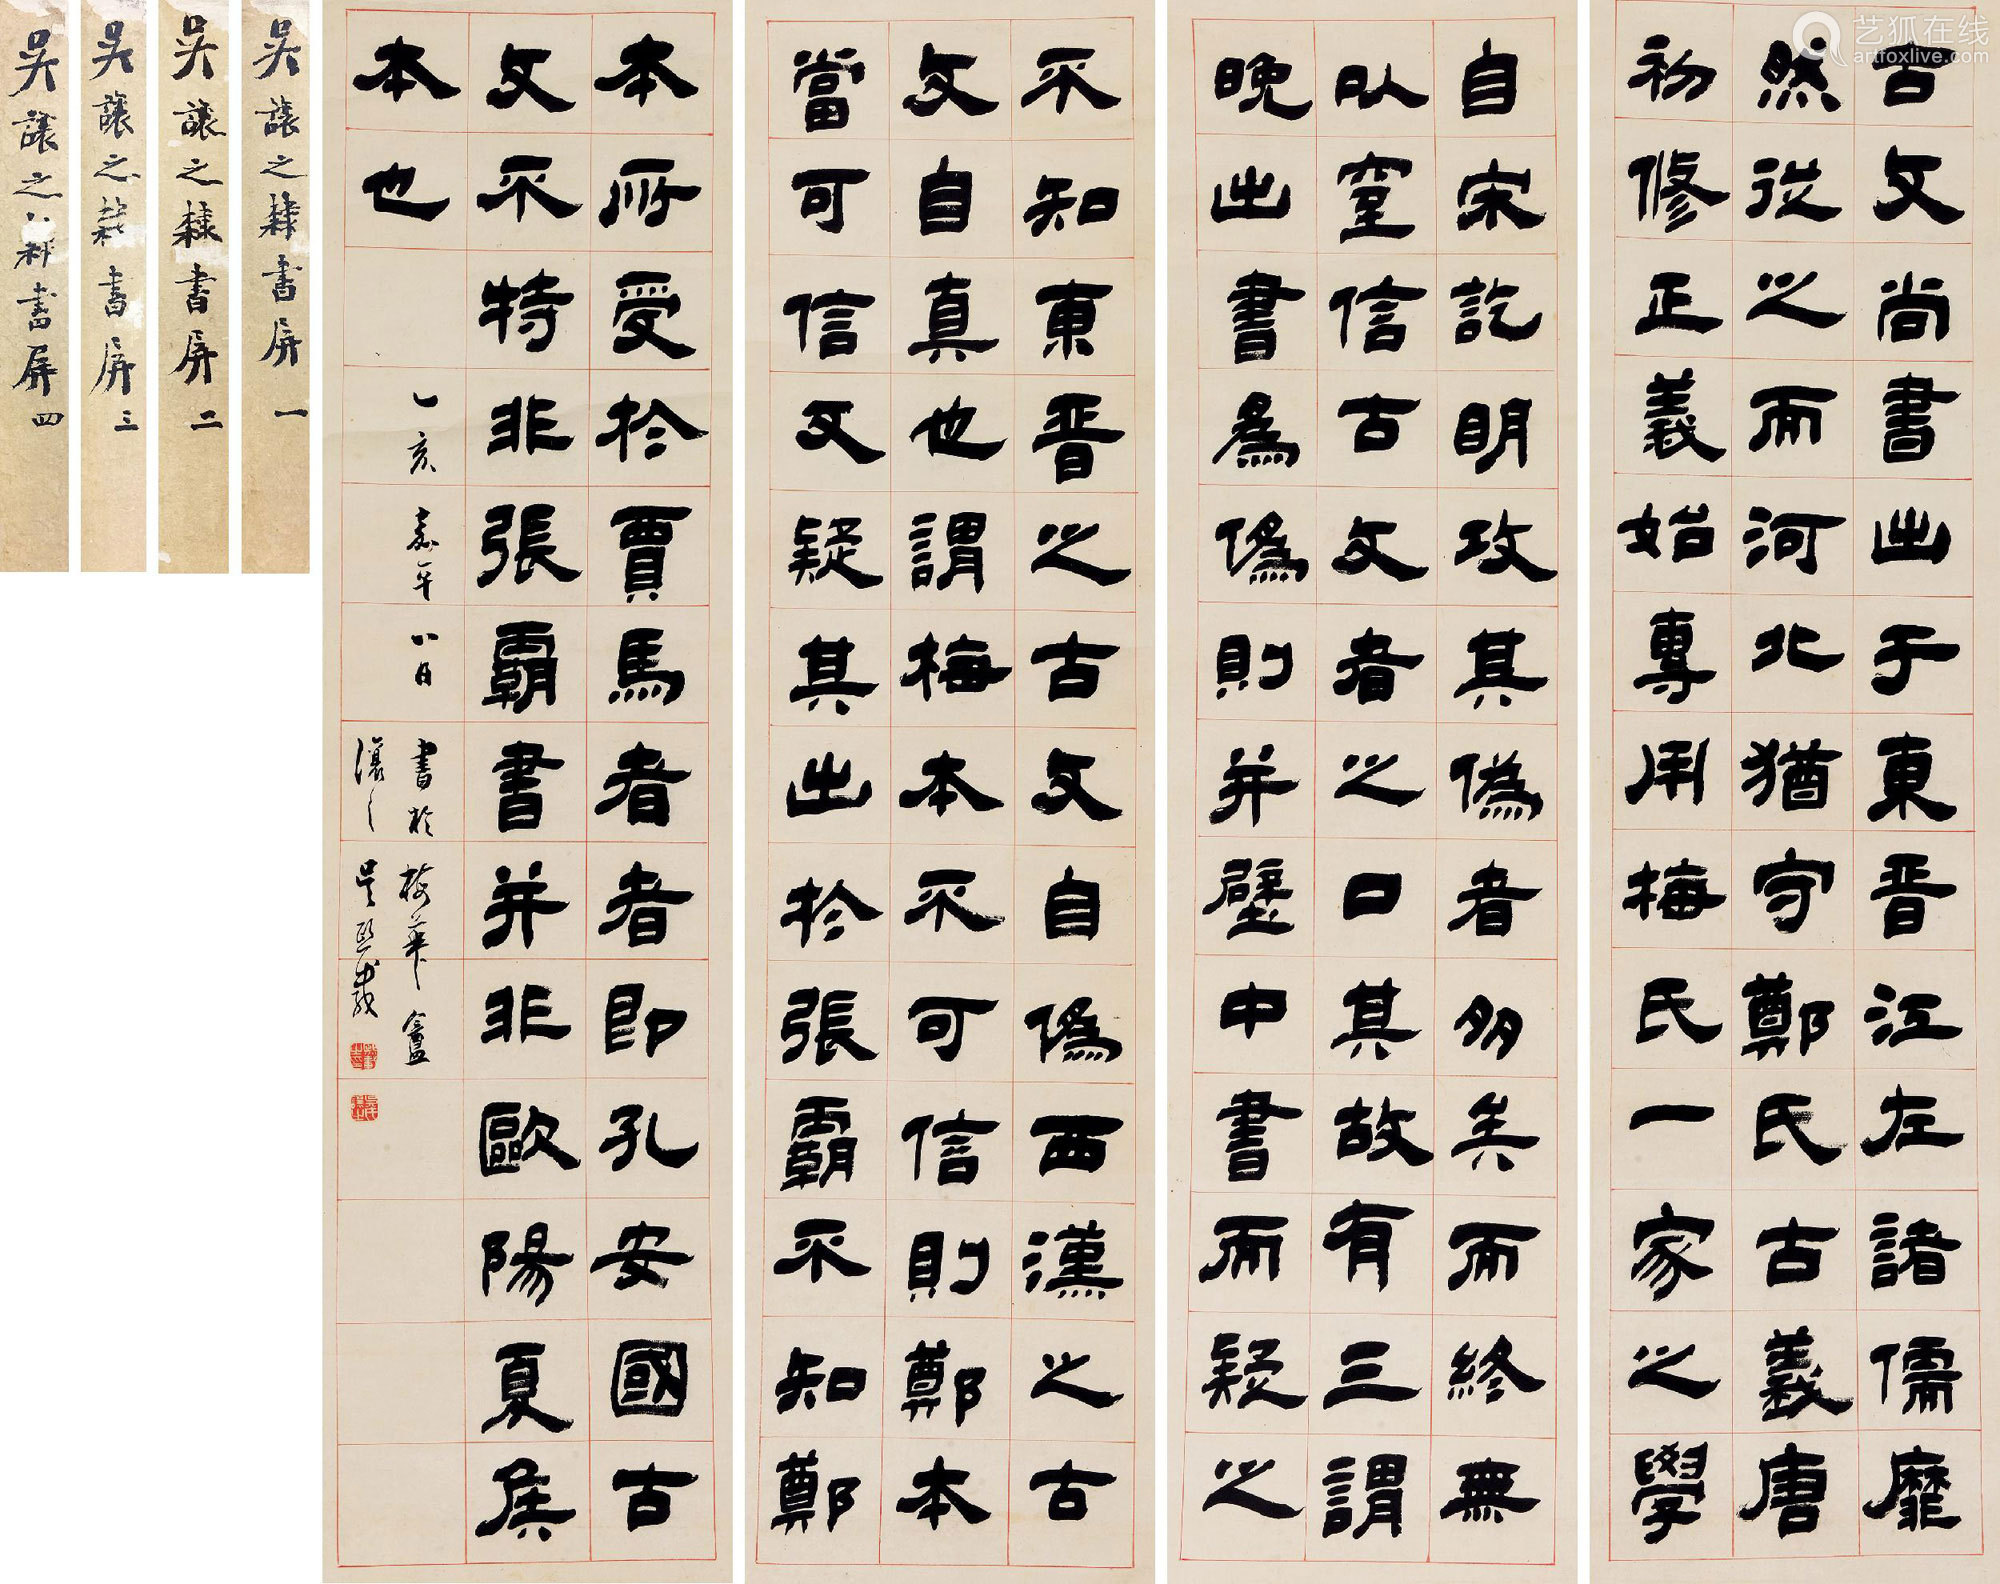 古文尚書出于東晉江左諸儒靡
然從之而河北猶守鄭氏古義唐
初修正義始專用梅氏一家之學
自宋訖明攻其偽者多矣而終無
以窒信古文者之口其故有三謂
晚出書為偽則并壁中書而疑之
不知東晉之古文自偽西漢之古
文自真也謂梅本不可信則鄭本
當可信又疑其出於張霸不知鄭
本所受於賈馬者者即孔安國古
文不特非張霸書并非歐陽夏侯
本也
乙亥嘉平八月書於梅華盦
讓之吳熙載
吳讓之隸書屏一
吳讓之隸書屏二
吳讓之隸書屏三
吳讓之隸書屏四
艺狐在线
artfoxlive.com